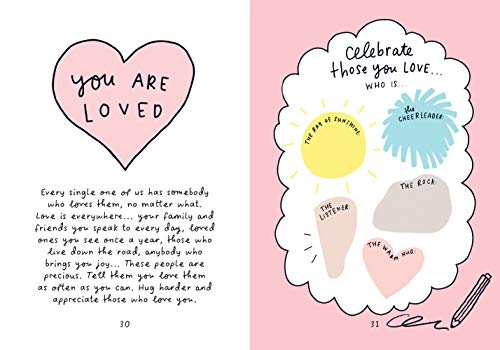 YOU ARE
LOVED
Every single one of us has somebody
who loves them, no matter what.
Love is everywhere... your family and
friends you speak to every day, loved
ones you see once a year, those who
live down the road, anybody who
brings you joy... These people are
precious. Tell them you love them
as often as you can. Hug harder and
appreciate those who love you.
30
Celebrate
those you LOVE...
WHO IS...
THE RAY OF SUNSHINE:
the
CHEERLEADER:
THE ROCK:
THE
LISTENER:
THE WARM HUG:
31